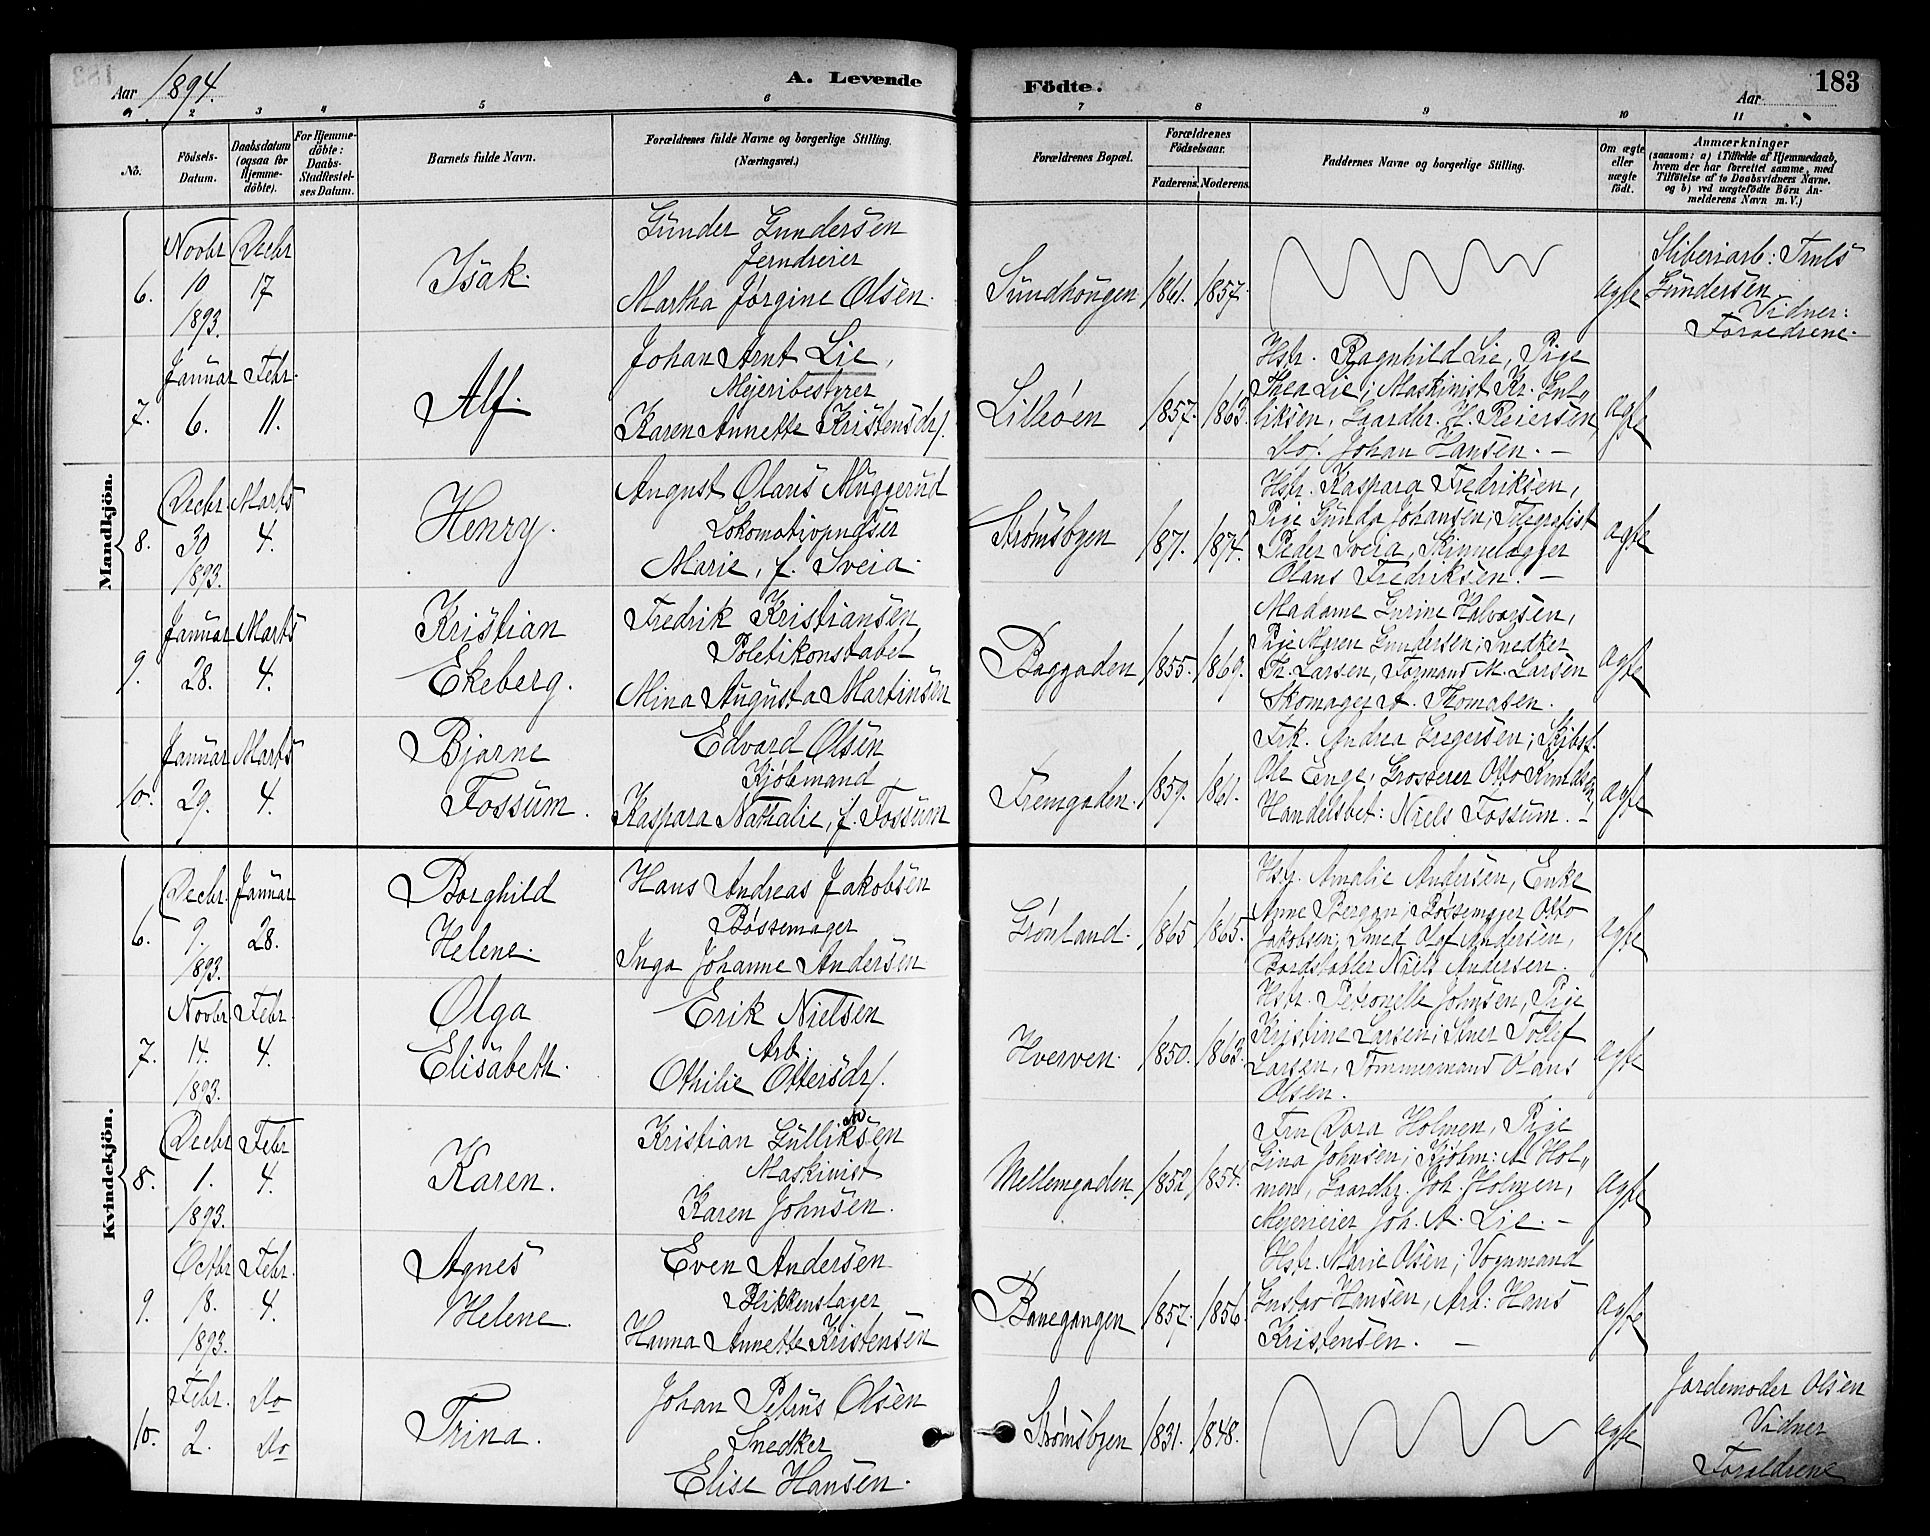 Aar 1894.
A. Levende
Födte.
Aar
183
1
2
3
4
5
6
7
8
9
10
11
No.
Födsels-
Datum.
Daabsdatum
(ogsaa for
Hjemme-
döbte).
For Hjemme-
döbte:
Daabs-
Stadfæstel-
ses Datum.
Barnets fulde Navn.
Forældrenes fulde Navne og borgerlige Stilling.
(Næringsvei.)
Forældrenes Bopæl.
Forældrenes
Födselsaar.
Faderens.
Moderens.
Faddernes Navne og borgerlige Stilling.
Om ægte
eller
uægte
födt.
Anmærkninger
(saasom: a) i Tilfælde af Hjemmedaab,
hvem der har forrettet samme, med
Tilföielse af to Daabsvidners Navne,
og b) ved uægtefödte Börn An-
melderens Navn m. V.)
Mandkjön.
6.
Novbr
10
1893.
Decbr
17
Isak.
Gunder Gundersen
Jerndreier
Martha Jørgine Olsen.
Sundhougen
1861.
1857.
ægte
Sliberiarb: Truls
Gundersen
Vidner:
Forældrene.
7.
Januar
6.
Febr.
11.
Alf.
Johan Arnt Lie,
Mejeribestyrer
Karen Annette Kristensdr.
Lilleøen
1857.
1863.
Hstr. Ragnhild Lie, Pige
Thea Lie; Maskinist Kr. Gul„
liksen, Gaardbr. H. Reiersen,
Do. Johan Hansen. –
ægte
8.
Decbr.
30
1893.
Marts
4.
Henry.
August Olaus Muggerud
Lokomotivpudser
Marie, f. Sveia.
Strømsbyen
1871.
1874.
Hstr. Kaspara Fredriksen,
Pige Gunda Johansen; Telegrafist
Peder Sveia, Skinnelægger
Olaus Fredriksen. –
ægte
9.
Januar
28.
Marts
4.
Kristian
Ekeberg.
Fredrik Kristiansen
Politikonstabel
Mina Augusta Martinsen
Baggaden
1855.
1869.
Madame Gurine Halvorsen,
Pige Maren Gundersen; Snedker
Th. Larsen, Formand M. Larsen
Skomager A. Thomasen.
ægte
10.
Januar
29.
Marts
4.
Bjarne
Fossum.
Edvard Olsen
Kjøbmand
Kaspara Nathalie, f. Fossum
Fremgaden.
1859.
1861.
Frk. Andrea Gregersen; Skibsf.
Ole Enge, Grosserer Otto Knudsen,
Handelsbet: Niels Fossum. –
ægte
Kvindekjön.
6.
Decbr.
9.
1893.
Januar
28.
Borghild
Helene.
Hans Andreas Jakobsen
Bøssemager
Inga Johanne Andersen
Grønland.
1865
1865.
Hstr. Amalie Andersen, Enke
Anne Bergan; Bøssemager Otto
Jakobsen; Smed Olaf Andersen,
Bordstabler Niels Andersen.
ægte
7.
Novbr
14.
1893.
Febr.
4.
Olga
Elisabeth.
Erik Nielsen
Arb.
Othilie Ottersdr.
Hverven.
1850.
1863.
Hstr. Petronelle Johnsen, Pige
Kristine Larsen; Stuer Tollef
Larsen, Tømmermand Olaus
Olsen.
ægte
8.
Decbr
1.
1893.
Febr
4.
Karen.
Kristian Gulliksen
Maskinist
Karen Johnsen.
Mellemgaden.
1852
1854.
Fru Dora Holmen, Pige
Gina Johnsen; Kjøbm: A. Hol„
men, Gaardbr. Joh. Holmen,
Mejerieier Joh. A. Lie. –
ægte
9.
Octbr
18.
1893.
Febr.
4.
Agnes
Helene.
Even Andersen
Blikkenslager
Hanna Annette Kristensen
Banegangen
1857.
1856.
Hstr. Marie Olsen; Vognmand
Gustav Hansen, Arb: Hans
Kristensen. –
ægte
10.
Febr.
2.
Do
Do
Trina.
Johan Petrus Olsen
Snedker
Elise Hansen.
Strømsbyen
1831.
1848.
ægte
Jordemoder Olsen
Vidner
Forældrene